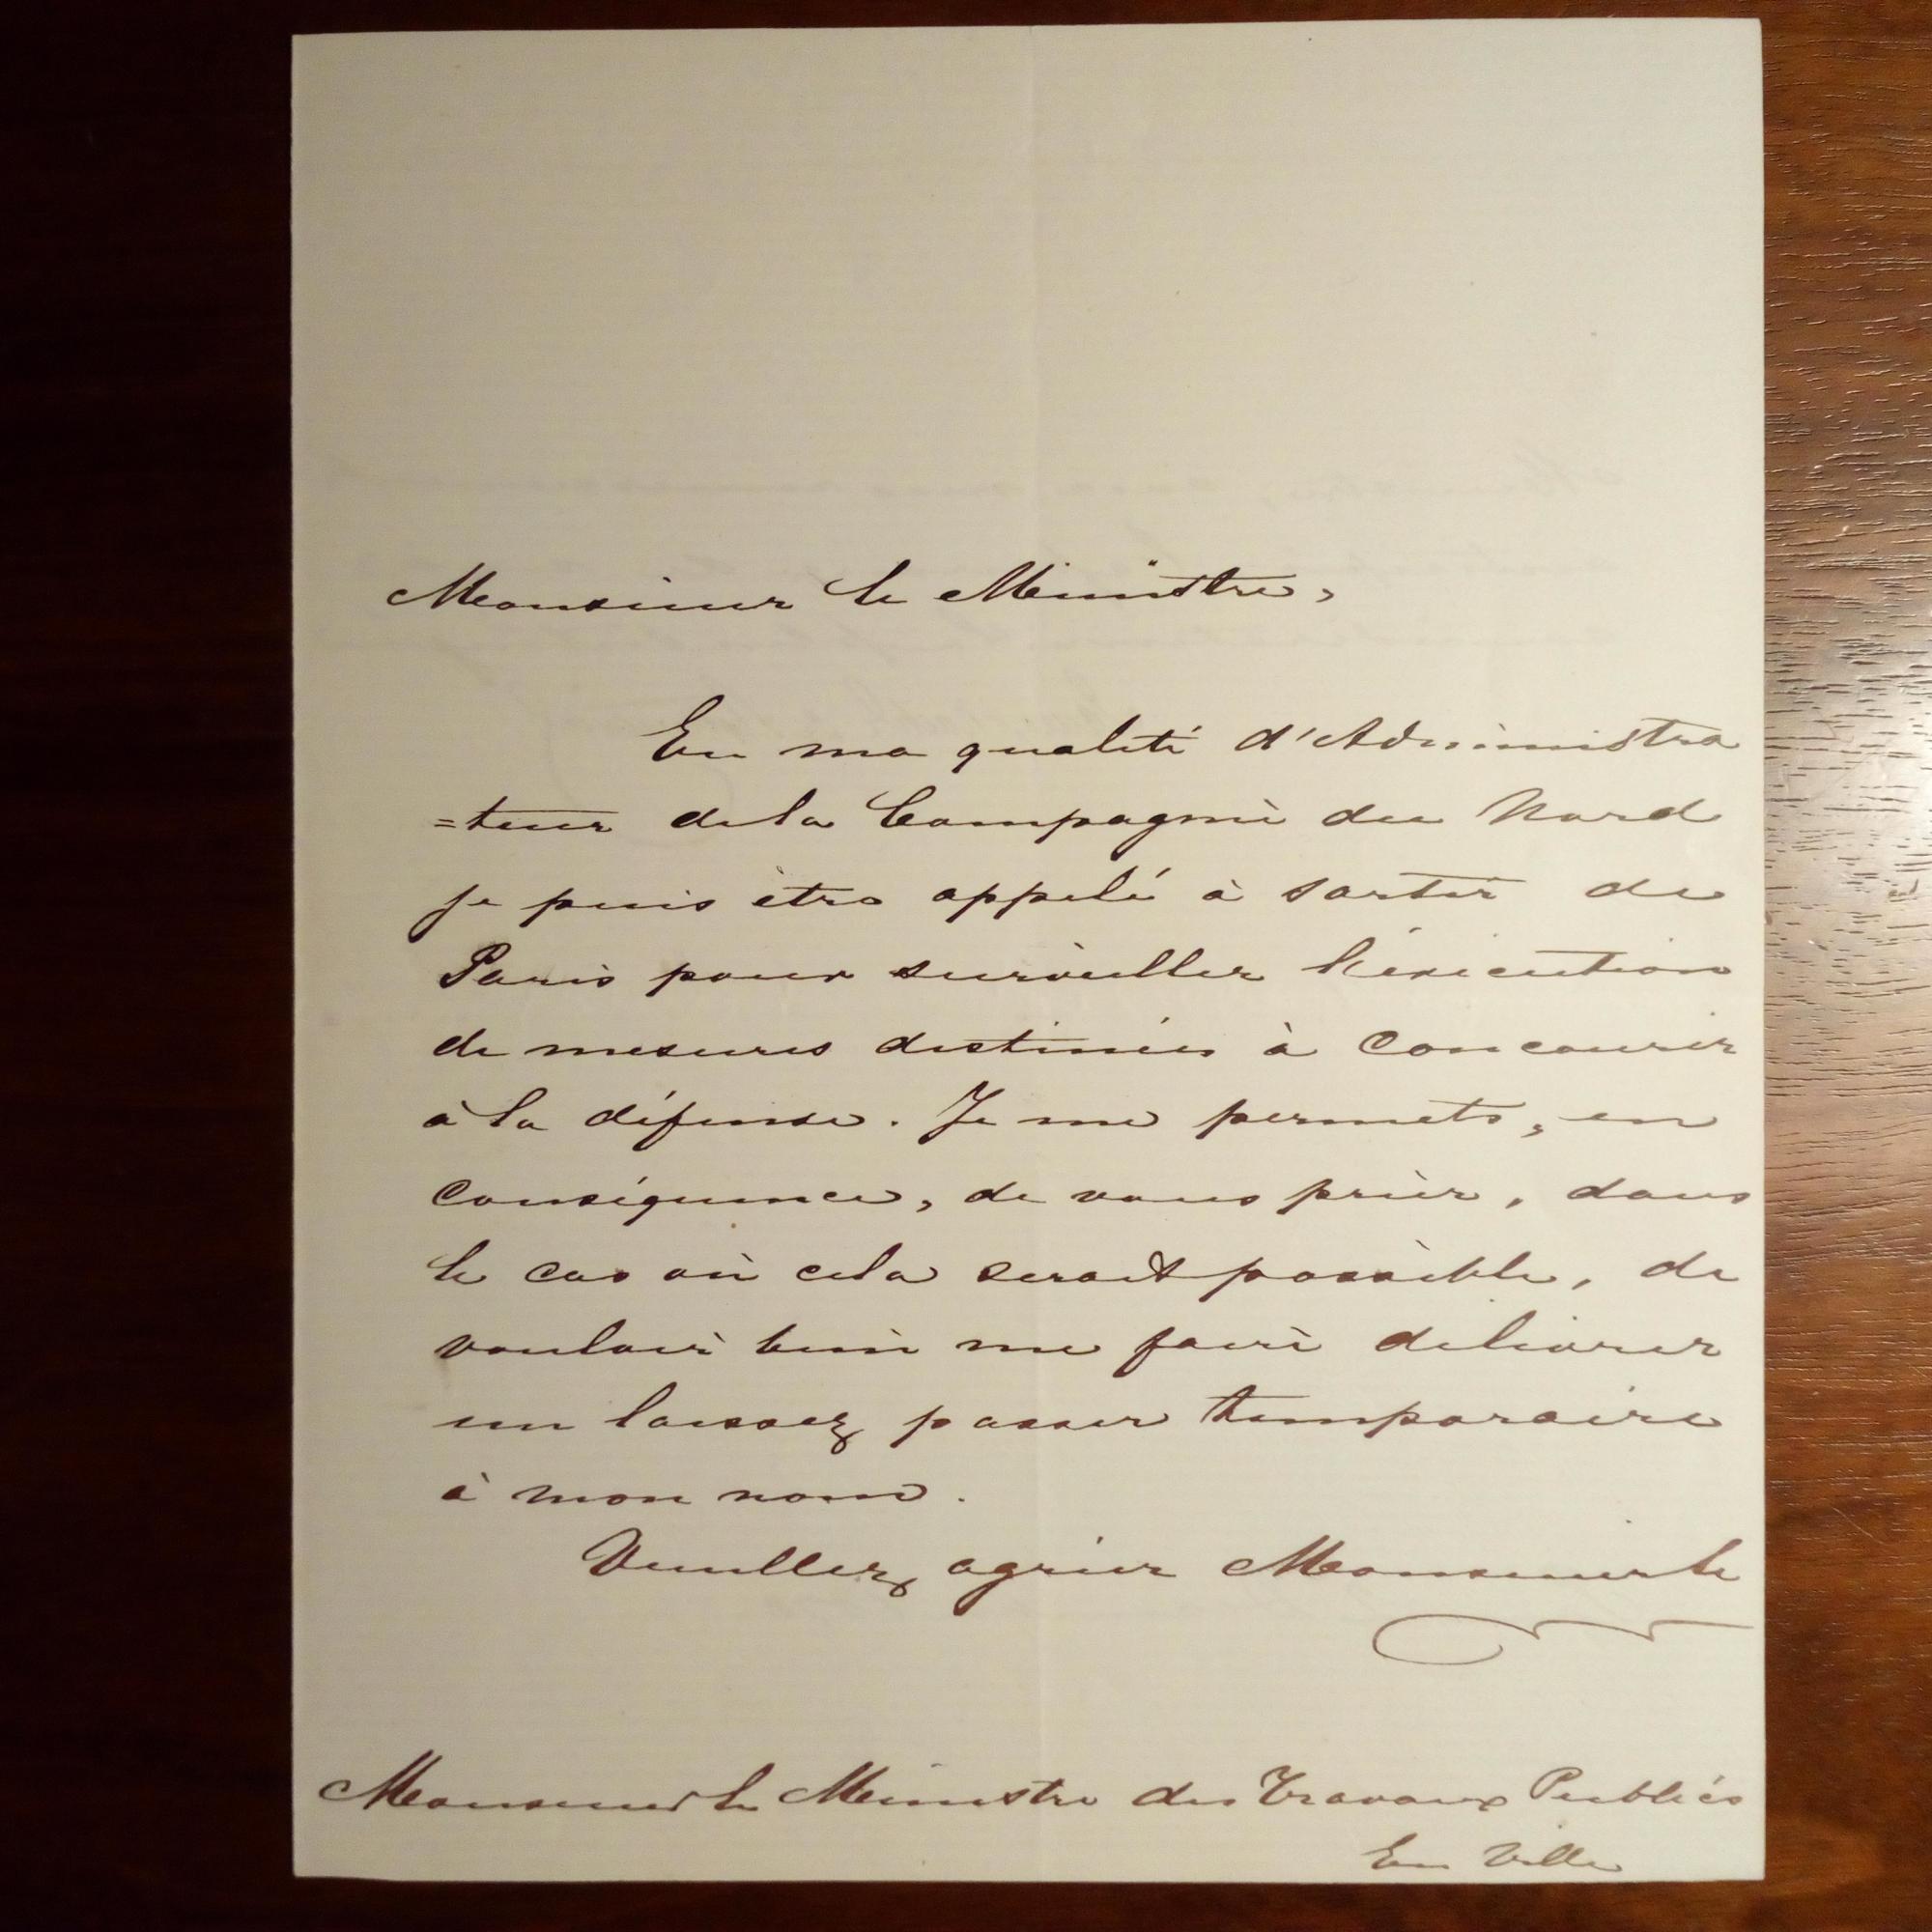 Monsieur le Ministre,
En ma qualité d'Administra
=teur de la Compagnie du Nord
je puis être appelé à sortir de
Paris pour surveiller l'exécution
de mesures destinées à concourir
à la défense. Je me permets, en
conséquence, de vous prier, dans
le cas où cela serait possible, de
vouloir bien me faire délivrer
un laissez passer temporaire
à mon nom.
Veuillez agréer Monsieur le
Monsieur le Ministre des Travaux Publics
En Ville